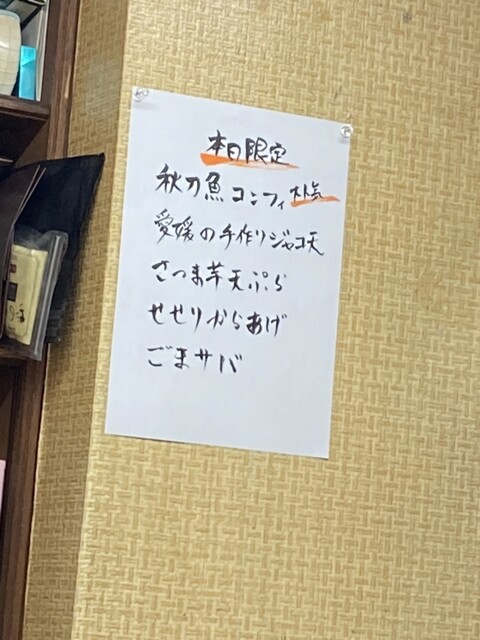 本日限定
秋刀魚コンフィ 大人気
愛媛の手作りジャコ天
さつま芋天ぷら
せせりからあげ
ごまサバ